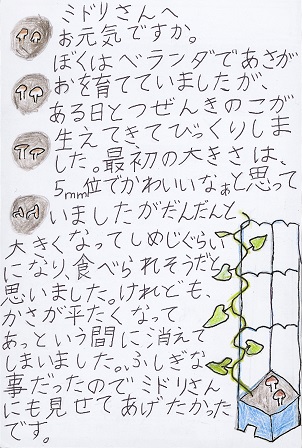 ミドリさんへ
お元気ですか。
ぼくはベランダであさが
おを育てていましたが、
ある日とつぜんきのこが
生えてきてびっくりしま
した。最初の大きさは、
5mm位でかわいいなぁと思って
いましたがだんだんと
大きくなってしめじぐらい
になり、食べられそうだと
思いました。けれども、
かさが平たくなって
あっという間に消えて
しまいました。ふしぎな
事だったのでミドリさん
にも見せてあげたかった
です。